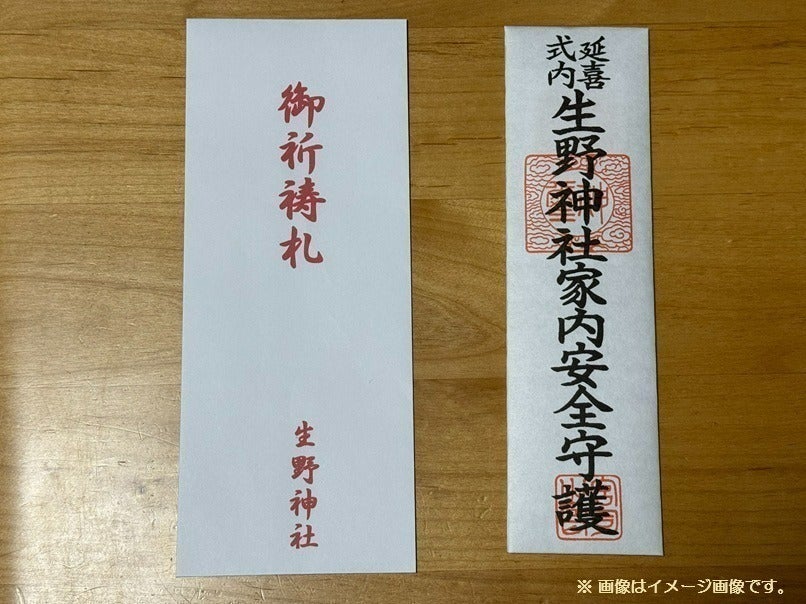 御祈祷札
生野神社
延喜
式内
生野神社家内安全守護
※ 画像はイメージ画像です。